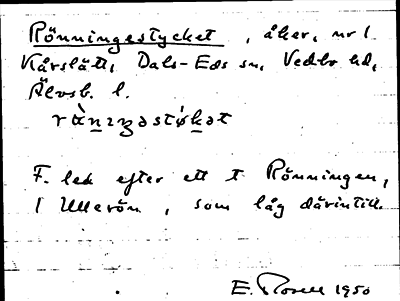 Rönningestycket, åker, nr 1
Kårslätt, Dals-Eds sn, Vedbo hd,
Älvsb. l.
rànɪŋəstýkət
F. led efter ett t Rönningen,
i Ulerön, som låg därintill.
E. Rosell 1950